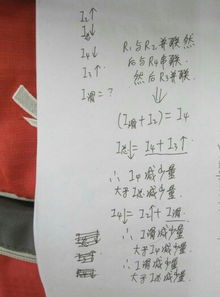 I₂↑
I总↓
I₄↓
I₃↑
I滑=?
R₁与R₂并联然
后与R4串联
然后R₃并联
⇓
(I滑+I₂)=I₄
I总↓=I₄+I₃↑
∴ I₄减少量
大于I总减少量.
I₄↓=I₂↑+I滑.
∴ I滑减少量
大于I₄减少量
∴ I滑减少量
大于I总减少量.